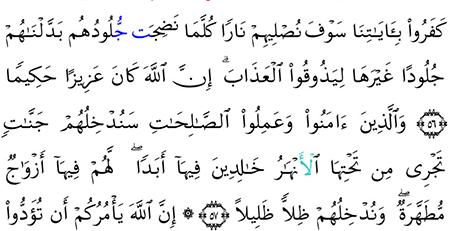 كَفَرُوا۟ بِـَٔايَـٰتِنَا سَوْفَ نُصْلِيهِمْ نَارًۭا كُلَّمَا نَضِجَتْ جُلُودُهُم بَدَّلْنَـٰهُمْ
جُلُودًا غَيْرَهَا لِيَذُوقُوا۟ ٱلْعَذَابَ ۗ إِنَّ ٱللَّهَ كَانَ عَزِيزًا حَكِيمًۭا
﴿٥٦﴾ وَٱلَّذِينَ ءَامَنُوا۟ وَعَمِلُوا۟ ٱلصَّـٰلِحَـٰتِ سَنُدْخِلُهُمْ جَنَّـٰتٍۢ
تَجْرِى مِن تَحْتِهَا ٱلْأَنْهَـٰرُ خَـٰلِدِينَ فِيهَآ أَبَدًۭا ۖ لَّهُمْ فِيهَآ أَزْوَٰجٌۭ
مُّطَهَّرَةٌۭ ۖ وَنُدْخِلُهُمْ ظِلًّۭا ظَلِيلًا ﴿٥٧﴾ ۞ إِنَّ ٱللَّهَ يَأْمُرُكُمْ أَن تُؤَدُّوا۟